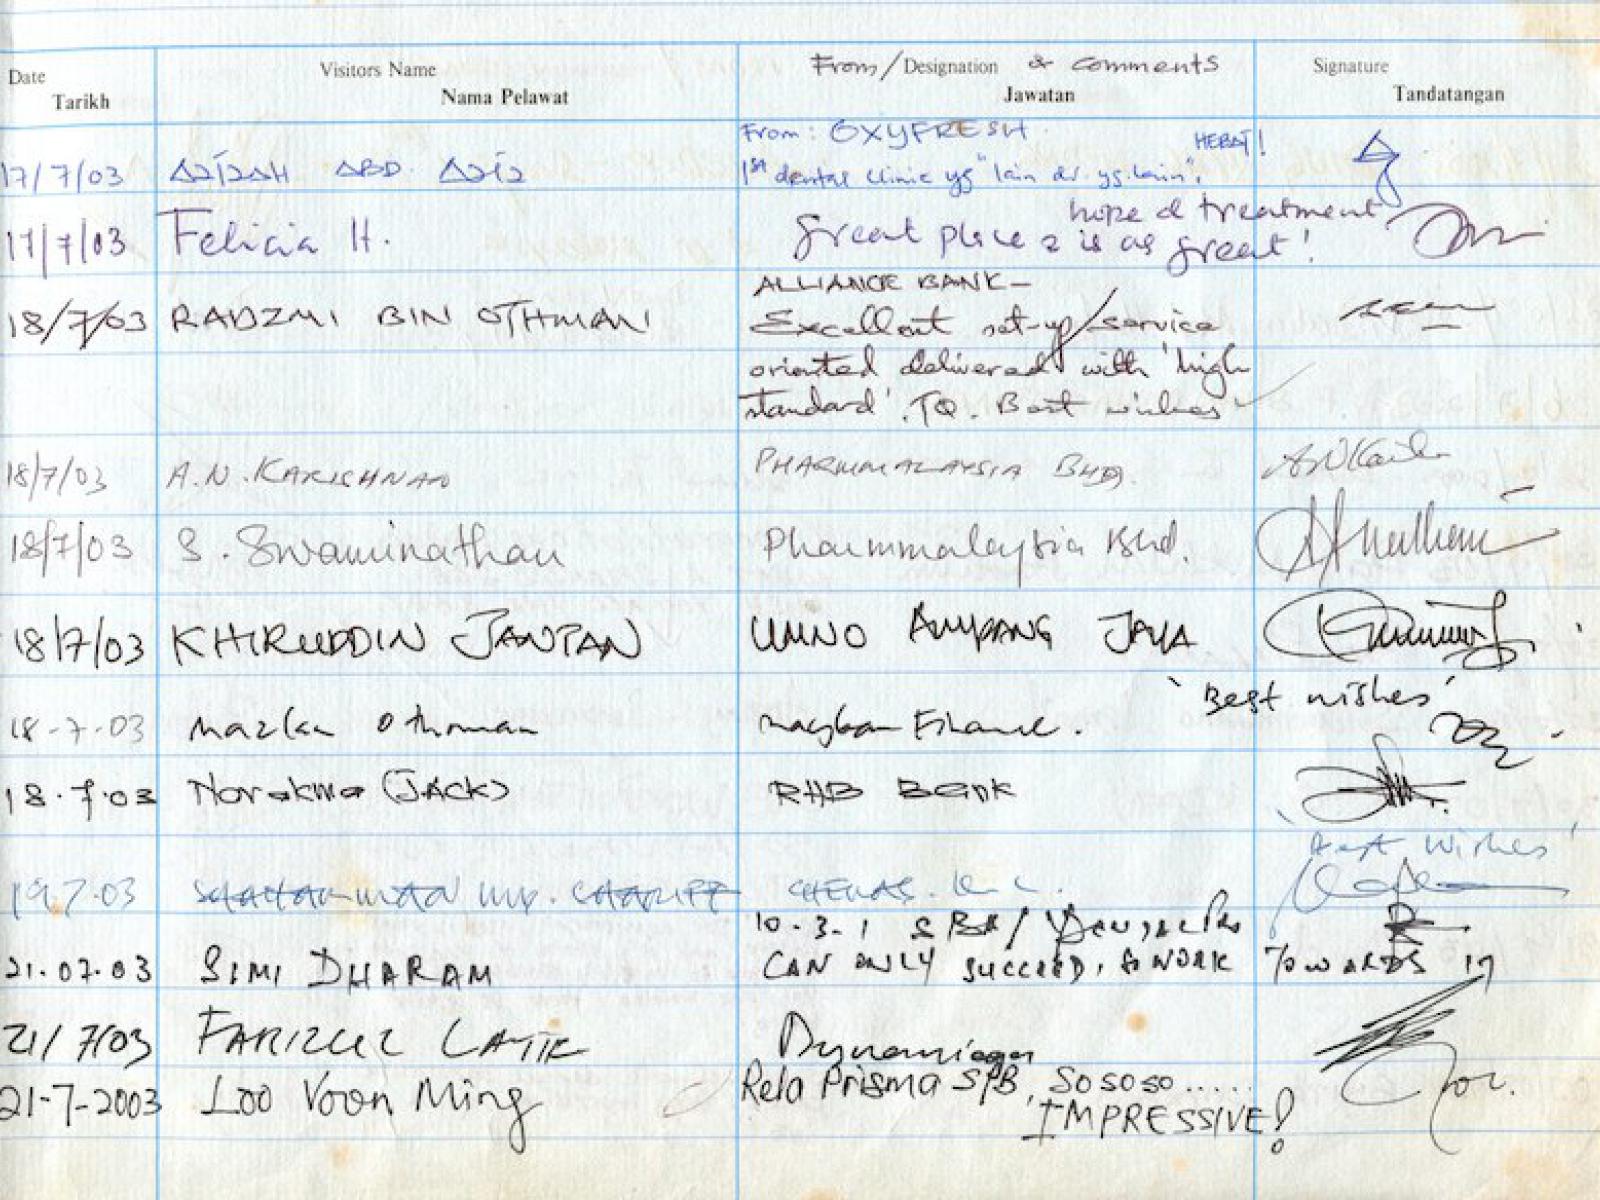 Date Visitors Name From/Designation & comments Signature
Tarikh Nama Pelawat Jawatan Tandatangan
From: OXYFRESH HEBAT!
17/7/03 AZIZAH ABD. AZIZ 1st dental clinic yg "lain dr. yg. lain",
hope d treatment
17/7/03 Felicia H. Great place & is as great!
ALLIANCE BANK-
18/7/03 RADZMI BIN OTHMAN Excellent set-up/service
oriented delivered with 'high
standard'. TQ. Best wishes
18/7/03 A.N. KARISHNAN PHARMMALAYSIA BHD.
18/7/03 S. Swaminathan Pharmmalaysia Bhd.
18/7/03 KHIRUDDIN JANTAN UMNO AMPANG JAYA
'Best wishes'
18-7-03 Mazlan Othman Mayban Finance.
18.7.03 (JACK) RHB Bank
'Best Wishes'
19.7.03 CHERAS. K.L.
10-3-1
21.07.03 SIMI DHARAM CAN ONLY SUCCEED, WORK TOWARDS IT
21/7/03 LATIF
21-7-2003 Loo Voon Ming Rela Prisma S/B, So so so .....
IMPRESSIVE!